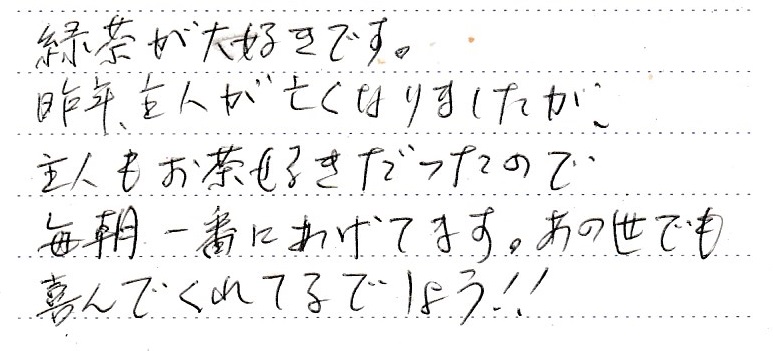 緑茶が大好きです。
昨年、主人が亡くなりましたが、
主人もお茶好きだったので
毎朝一番にあげてます。あの世でも
喜んでくれてるでしょう!!